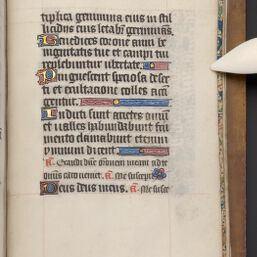 tiplica genimina eius in stil
licidijs eius letabit germinans.
Benedices corone anni be
nignitatis tue et campi tui
replebuntur ubertate.
Pinguescent speciosa deser
ti et exultatione colles accin
gentur.
Induti sunt arietes ovium
et valles habundabunt fru
mento clamabunt etenim
ymnum dicent.
A. Exaudi dne orationem meam ad te
omnis caro veniet. A. Me suscepit
Deus deus meus. A. Me suscepit